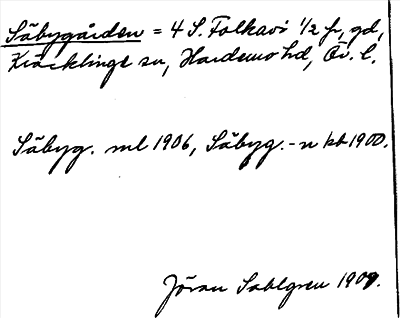 Säbygården = 4 S. Folkavi 1/2 fr, gd,
Kräcklinge sn, Hardemo hd, Ör. l.
Säbyg. ml 1906, Säbyg.-n kb 1900.
Jöran Sahlgren 1909.